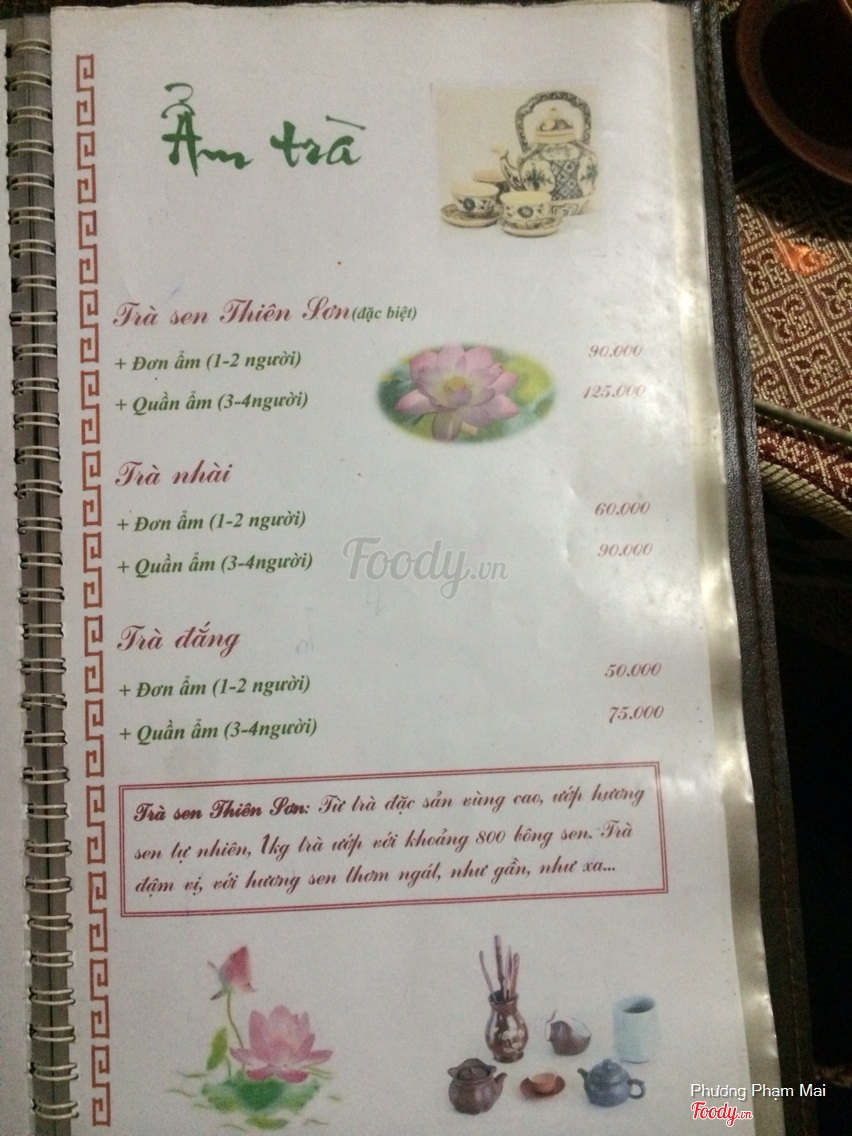 Ẩm trà
Trà sen Thiên Sơn(đặc biệt)
+ Đơn ẩm (1-2 người) 90.000
+ Quần ẩm (3-4người) 125.000
Trà nhài
+ Đơn ẩm (1-2 người) 60.000
+ Quần ẩm (3-4người) 90.000
Foody.vn
Trà đắng
+ Đơn ẩm (1-2 người) 50.000
+ Quần ẩm (3-4người) 75.000
Trà sen Thiên Sơn: Từ trà đặc sản vùng cao, ướp hương
sen tự nhiên, 1kg trà ướp với khoảng 800 bông sen. Trà
đậm vị, với hương sen thơm ngát, như gần, như xa...
Phương Phạm Mai
Foody.vn